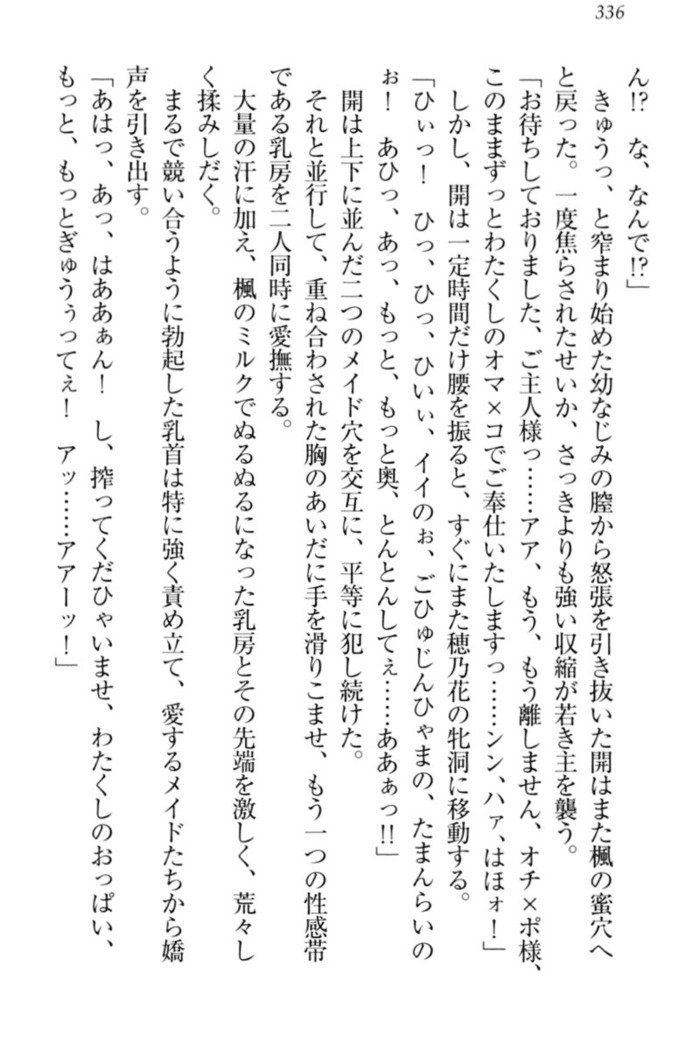 336
ん!?　な、なんで!?」
　きゅうっ、と窄まり始めた幼なじみの膣から怒張を引き抜いた開はまた楓の蜜穴へ
と戻った。一度焦らされたせいか、さっきよりも強い収縮が若き主を襲う。
「お待ちしておりました、ご主人様っ……アア、もう、もう離しません、オチ×ポ様、
このままずっとわたくしのオマ×コでご奉仕いたしますっ……ンン、ハァ、はほォ！」
　しかし、開は一定時間だけ腰を振ると、すぐにまた穂乃花の牝洞に移動する。
「ひぃっ！　ひっ、ひっ、ひいぃ、イイのぉ、ごひゅじんひゃまの、たまんらいの
ぉ！　あひっ、あっ、もっと、もっと奥、とんとんしてぇ……ああぁっ!!」
　開は上下に並んだ二つのメイド穴を交互に、平等に犯し続けた。
　それと並行して、重ね合わされた胸のあいだに手を滑りこませ、もう一つの性感帯
である乳房を二人同時に愛撫する。
　大量の汗に加え、楓のミルクでぬるぬるになった乳房とその先端を激しく、荒々し
く揉みしだく。
　まるで競い合うように勃起した乳首は特に強く責め立て、愛するメイドたちから嬌
声を引き出す。
「あはっ、あっ、はああぁん！　し、搾ってくだひゃいませ、わたくしのおっぱい、
もっと、もっとぎゅうぅってぇ！　アッ……アアーッ！」